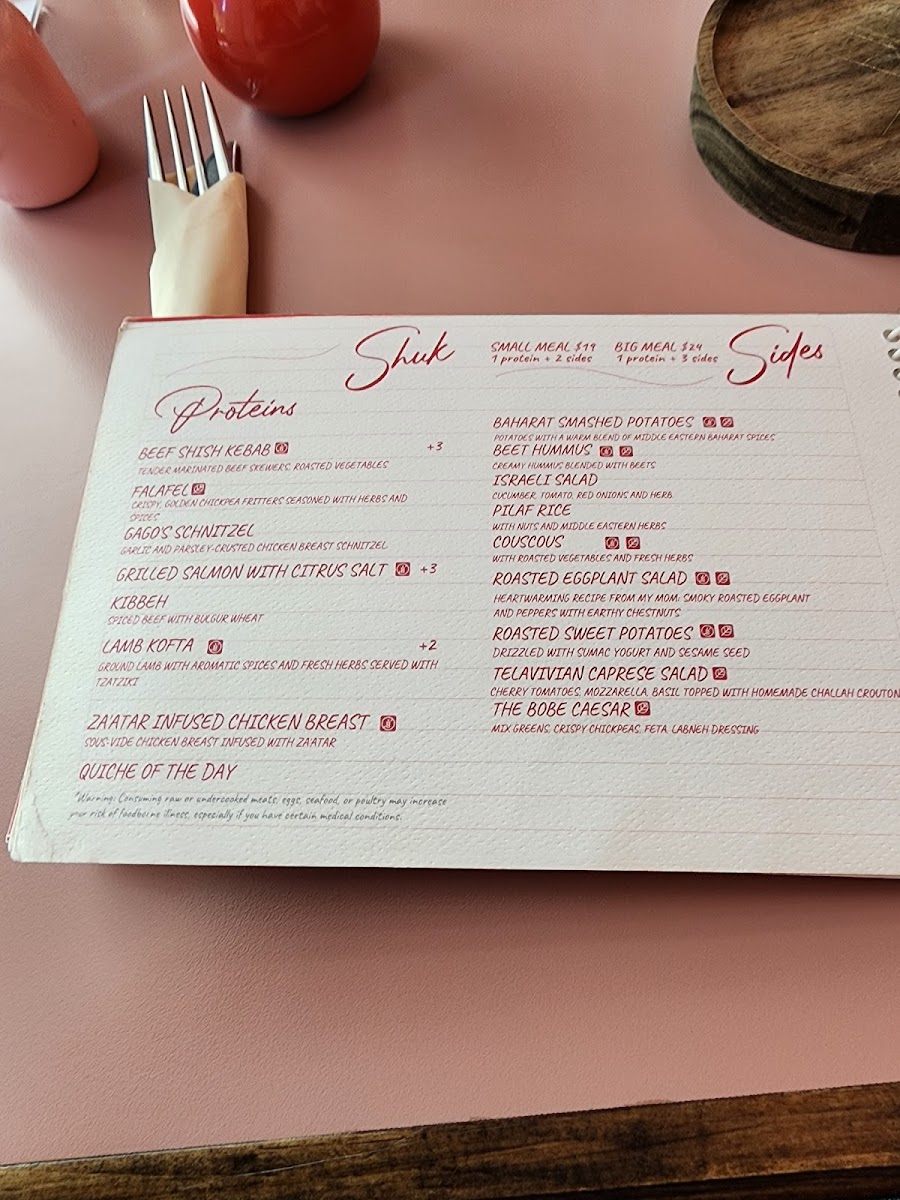 Shuk
SMALL MEAL $19 BIG MEAL $24
1 protein + 2 sides 1 protein + 3 sides
Proteins
BEEF SHISH KEBAB +3
TENDER MARINATED BEEF SKEWERS, ROASTED VEGETABLES
FALAFEL
CRISPY, GOLDEN CHICKPEA FRITTERS SEASONED WITH HERBS AND
SPICES
GAGO'S SCHNITZEL
GARLIC AND PARSLEY-CRUSTED CHICKEN BREAST SCHNITZEL
GRILLED SALMON WITH CITRUS SALT +3
KIBBEH
SPICED BEEF WITH BULGUR WHEAT
LAMB KOFTA +2
GROUND LAMB WITH AROMATIC SPICES AND FRESH HERBS SERVED WITH
TZATZIKI
ZA'ATAR INFUSED CHICKEN BREAST
SOUS-VIDE CHICKEN BREAST INFUSED WITH ZA'ATAR
QUICHE OF THE DAY
*Warning: Consuming raw or undercooked meats, eggs, seafood, or poultry may increase
your risk of foodborne illness, especially if you have certain medical conditions.
Sides
BAHARAT SMASHED POTATOES
POTATOES WITH A WARM BLEND OF MIDDLE EASTERN BAHARAT SPICES
BEET HUMMUS
CREAMY HUMMUS BLENDED WITH BEETS
ISRAELI SALAD
CUCUMBER, TOMATO, RED ONIONS AND HERB.
PILAF RICE
WITH NUTS AND MIDDLE EASTERN HERBS
COUSCOUS
WITH ROASTED VEGETABLES AND FRESH HERBS
ROASTED EGGPLANT SALAD
HEARTWARMING RECIPE FROM MY MOM: SMOKY ROASTED EGGPLANT
AND PEPPERS WITH EARTHY CHESTNUTS
ROASTED SWEET POTATOES
DRIZZLED WITH SUMAC YOGURT AND SESAME SEED
TELAVIVIAN CAPRESE SALAD
CHERRY TOMATOES, MOZZARELLA, BASIL TOPPED WITH HOMEMADE CHALLAH CROUTON
THE BOBE CAESAR
MIX GREENS, CRISPY CHICKPEAS, FETA, LABNEH DRESSING